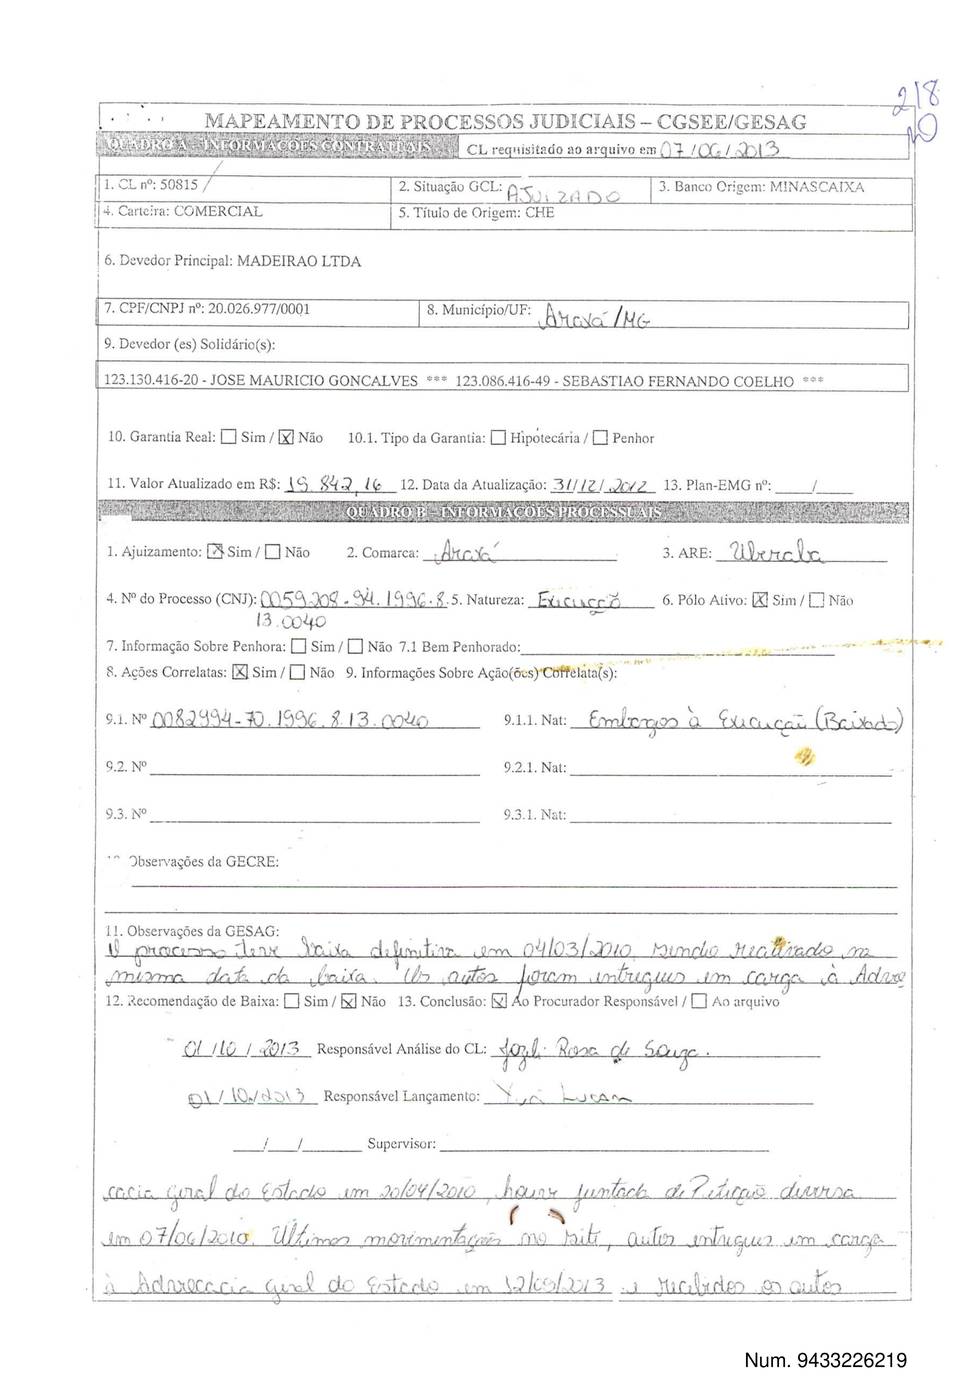 218
MAPEAMENTO DE PROCESSOS JUDICIAIS – CGSEE/GESAG
QUADRO A – INFORMAÇÕES CONTRATUAIS CL requisitado ao arquivo em 07/06/2013
1. CL nº: 50815 / 2. Situação GCL: AJUIZADO 3. Banco Origem: MINASCAIXA
4. Carteira: COMERCIAL 5. Título de Origem: CHE
6. Devedor Principal: MADEIRAO LTDA
7. CPF/CNPJ nº: 20.026.977/0001 8. Município/UF: Araxá/MG
9. Devedor (es) Solidário(s):
123.130.416-20 - JOSE MAURICIO GONCALVES *** 123.086.416-49 - SEBASTIAO FERNANDO COELHO ***
10. Garantia Real: ☐ Sim / ☒ Não 10.1. Tipo da Garantia: ☐ Hipotecária / ☐ Penhor
11. Valor Atualizado em R$: 19.842,16 12. Data da Atualização: 31/12/2012 13. Plan-EMG nº: ____/____
QUADRO B – INFORMAÇÕES PROCESSUAIS
1. Ajuizamento: ☒ Sim / ☐ Não 2. Comarca: Araxá 3. ARE: Uberaba
4. Nº do Processo (CNJ): 0059208-94.1996.8. 5. Natureza: Execução 6. Pólo Ativo: ☒ Sim / ☐ Não
13.0040
7. Informação Sobre Penhora: ☐ Sim / ☐ Não 7.1 Bem Penhorado:
8. Ações Correlatas: ☒ Sim / ☐ Não 9. Informações Sobre Ação(ões) Correlata(s):
9.1. Nº 0082994-70.1996.8.13.0040 9.1.1. Nat: Embargos à Execução (Baixado)
9.2. Nº 9.2.1. Nat:
9.3. Nº 9.3.1. Nat:
Observações da GECRE:
11. Observações da GESAG:
O processo teve baixa definitiva em 04/03/2010, sendo reativado na
mesma data da baixa. Os autos foram entregues em carga à Advo
12. Recomendação de Baixa: ☐ Sim / ☒ Não 13. Conclusão: ☒ Ao Procurador Responsável / ☐ Ao arquivo
01/10/2013 Responsável Análise do CL: Rosa de Souza.
01/10/2013 Responsável Lançamento:
___/___/___ Supervisor:
cacia Geral do Estado em 20/04/2010, houve juntada de Petição diversa
em 07/06/2010. Últimas movimentações no site, autos entregues em carga
à Advocacia Geral do Estado em 12/09/2013 e recebidos os autos
Num. 9433226219